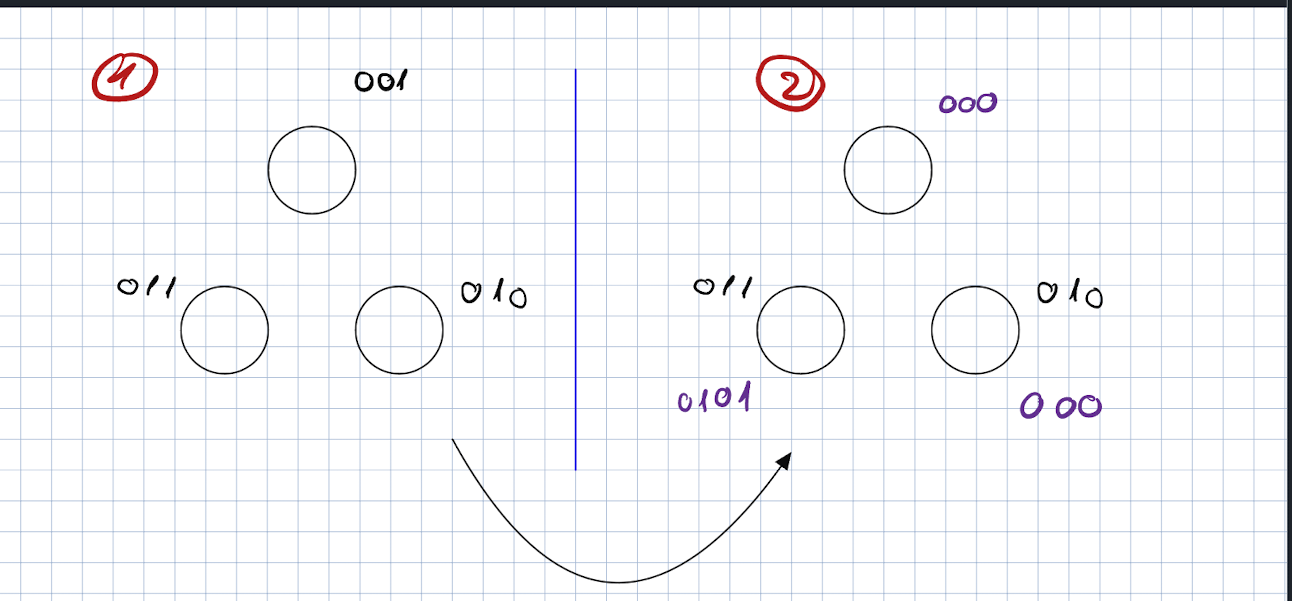 1
001
011
010
2
000
011
010
0101
000